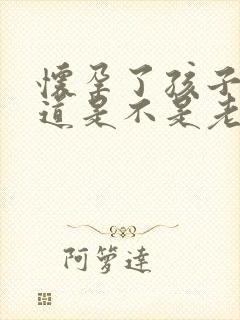 懷孕了孩子
道是不是老
阿箩達